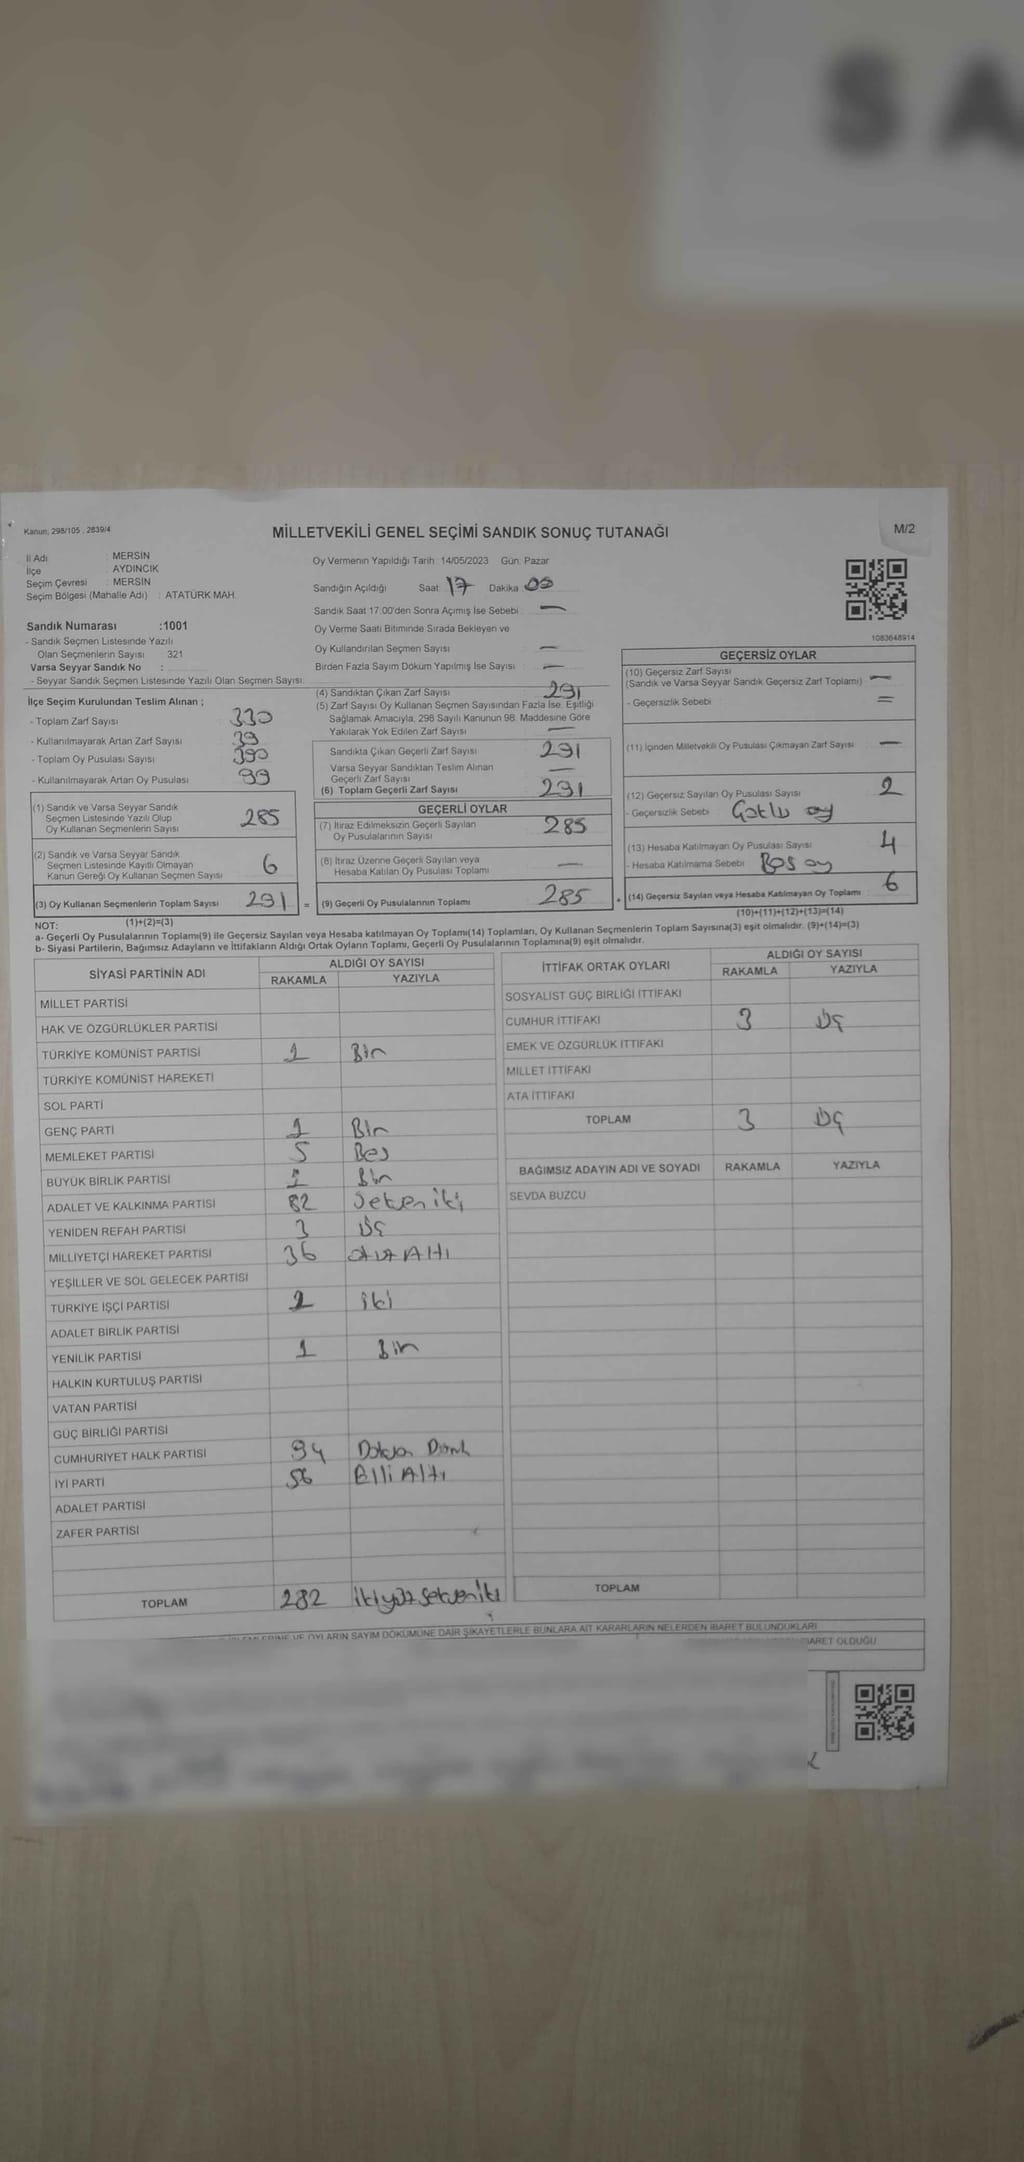 SA
Kanun; 298/105 , 2839/4
MİLLETVEKİLİ GENEL SEÇİMİ SANDIK SONUÇ TUTANAĞI
M/2
İl Adı : MERSİN
İlçe : AYDINCIK
Seçim Çevresi : MERSİN
Seçim Bölgesi (Mahalle Adı) : ATATÜRK MAH.
Oy Vermenin Yapıldığı Tarih: 14/05/2023 Gün: Pazar
Sandığın Açıldığı Saat: 17 Dakika
Sandık Saat 17:00'den Sonra Açımış İse Sebebi : —
Oy Verme Saati Bitiminde Sırada Bekleyen ve
Oy Kullandırılan Seçmen Sayısı —
Birden Fazla Sayım Döküm Yapılmış İse Sayısı —
1083648914
Sandık Numarası :1001
- Sandık Seçmen Listesinde Yazılı
Olan Seçmenlerin Sayısı : 321
Varsa Seyyar Sandık No :
- Seyyar Sandık Seçmen Listesinde Yazılı Olan Seçmen Sayısı:
İlçe Seçim Kurulundan Teslim Alınan ;
- Toplam Zarf Sayısı 330
- Kullanılmayarak Artan Zarf Sayısı 39
- Toplam Oy Pusulası Sayısı 390
- Kullanılmayarak Artan Oy Pusulası 99
(1) Sandık ve Varsa Seyyar Sandık
Seçmen Listesinde Yazılı Olup
Oy Kullanan Seçmenlerin Sayısı 285
(2) Sandık ve Varsa Seyyar Sandık
Seçmen Listesinde Kayıtlı Olmayan
Kanun Gereği Oy Kullanan Seçmen Sayısı 6
(3) Oy Kullanan Seçmenlerin Toplam Sayısı 291 =
(1)+(2)=(3)
(4) Sandıktan Çıkan Zarf Sayısı 291
(5) Zarf Sayısı Oy Kullanan Seçmen Sayısından Fazla İse, Eşitliği
Sağlamak Amacıyla, 298 Sayılı Kanunun 98. Maddesine Göre
Yakılarak Yok Edilen Zarf Sayısı —
Sandıkta Çıkan Geçerli Zarf Sayısı 291
Varsa Seyyar Sandıktan Teslim Alınan
Geçerli Zarf Sayısı —
(6) Toplam Geçerli Zarf Sayısı 291
GEÇERLİ OYLAR
(7) İtiraz Edilmeksizin Geçerli Sayılan
Oy Pusulalarının Sayısı 285
(8) İtiraz Üzerine Geçerli Sayılan veya
Hesaba Katılan Oy Pusulası Toplamı —
(9) Geçerli Oy Pusulalarının Toplamı 285 +
GEÇERSİZ OYLAR
(10) Geçersiz Zarf Sayısı
(Sandık ve Varsa Seyyar Sandık Geçersiz Zarf Toplamı) —
- Geçersizlik Sebebi : =
(11) İçinden Milletvekili Oy Pusulası Çıkmayan Zarf Sayısı —
(12) Geçersiz Sayılan Oy Pusulası Sayısı 2
- Geçersizlik Sebebi : oy
(13) Hesaba Katılmayan Oy Pusulası Sayısı 4
- Hesaba Katılmama Sebebi : Boş oy
(14) Geçersiz Sayılan veya Hesaba Katılmayan Oy Toplamı 6
(10)+(11)+(12)+(13)=(14)
NOT:
a- Geçerli Oy Pusulalarının Toplamı(9) ile Geçersiz Sayılan veya Hesaba katılmayan Oy Toplamı(14) Toplamları, Oy Kullanan Seçmenlerin Toplam Sayısına(3) eşit olmalıdır. (9)+(14)=(3)
b- Siyasi Partilerin, Bağımsız Adayların ve İttifakların Aldığı Ortak Oyların Toplamı, Geçerli Oy Pusulalarının Toplamına(9) eşit olmalıdır.
SİYASİ PARTİNİN ADI ALDIĞI OY SAYISI
RAKAMLA YAZIYLA
MİLLET PARTİSİ
HAK VE ÖZGÜRLÜKLER PARTİSİ
TÜRKİYE KOMÜNİST PARTİSİ 1 Bir
TÜRKİYE KOMÜNİST HAREKETİ
SOL PARTİ
GENÇ PARTİ 1 Bir
MEMLEKET PARTİSİ 5 Beş
BÜYÜK BİRLİK PARTİSİ 1 Bir
ADALET VE KALKINMA PARTİSİ 82 Seksen iki
YENİDEN REFAH PARTİSİ 3 Üç
MİLLİYETÇİ HAREKET PARTİSİ 36 Otuz Altı
YEŞİLLER VE SOL GELECEK PARTİSİ
TÜRKİYE İŞÇİ PARTİSİ 2 iki
ADALET BİRLİK PARTİSİ
YENİLİK PARTİSİ 1 Bir
HALKIN KURTULUŞ PARTİSİ
VATAN PARTİSİ
GÜÇ BİRLİĞİ PARTİSİ
CUMHURİYET HALK PARTİSİ 94 Doksan Dört
İYİ PARTİ 56 Elli Altı
ADALET PARTİSİ
ZAFER PARTİSİ
TOPLAM 282 ikiyüz seksen iki
İTTİFAK ORTAK OYLARI ALDIĞI OY SAYISI
RAKAMLA YAZIYLA
SOSYALİST GÜÇ BİRLİĞİ İTTİFAKI
CUMHUR İTTİFAKI 3 Üç
EMEK VE ÖZGÜRLÜK İTTİFAKI
MİLLET İTTİFAKI
ATA İTTİFAKI
TOPLAM 3 Üç
BAĞIMSIZ ADAYIN ADI VE SOYADI RAKAMLA YAZIYLA
SEVDA BUZCU
TOPLAM
VE OYLARIN SAYIM DÖKÜMÜNE DAİR ŞİKAYETLERLE BUNLARA AİT KARARLARIN NELERDEN İBARET BULUNDUKLARI
OLDUĞU